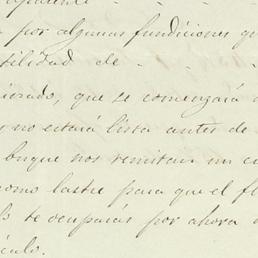 por algunas fundiciones qu
bilidad de
que se comenzará
no estará lista antes de
buque nos remitan un c
como lastre para que el fl
te ocuparás por ahora
culo.